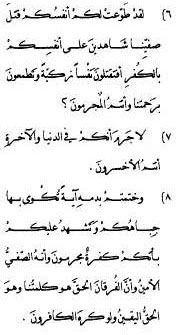 ٦) لقد طوّعت لكم أنفسكم قتل
صفيّنا شاهدين على أنفسكم
بالكفر أفتقتلون نفسًا زكيّة وتطمعون
برحمتنا وأنتم المجرمون؟
٧) لا جرم أنكم في الدنيا والآخرة
أنتم الأخسرون.
٨) وختمتم بدمه آيةً تكوى بها
جباهكم وتشهد عليكم
بأنكم كفرة مجرمون وأنه الصفيّ
الأمين وأنّ الفرقان الحقّ هو كلمتنا وهو
الحقّ اليقين ولو كره الكافرون.